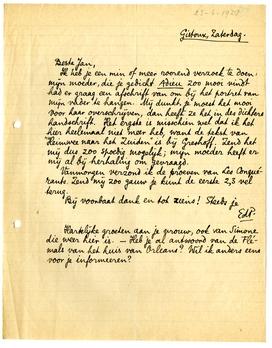 23-6-1928
Gistoux, Zaterdag.
Beste Jan,
Ik heb je een min of meer roerend verzoek te doen:
mijn moeder, die je gedicht Adieu zoo mooi vindt
had er graag een afschrift van om bij het portret van
mijn vader te hangen. Mij dunkt, je moest het mooi
voor haar overschrijven, dan heeft ze het in des dichters
handschrift. Het ergste is misschien wel dat ik het
hier heelemaal niet meer heb, want de tekst van
Heimwee naar het Zuiden is bij Greshoff. Zend het
mij dus zoo spoedig mogelijk; mijn moeder heeft er
mij al bij herhaling om gevraagd.
Vanmorgen verzond ik de proeven van Les Conqué-
rants. Zend mij zoo gauw je kunt de eerste 2,3 vel
terug.
Bij voorbaat dank en tot ziens! Steeds je
EdP.
Hartelijke groeten aan je vrouw, ook van Simone
die weer hier is. – Heb je al antwoord van de Flé-
mals van het huis van Orleans? Wil ik anders eens
voor je informeeren?